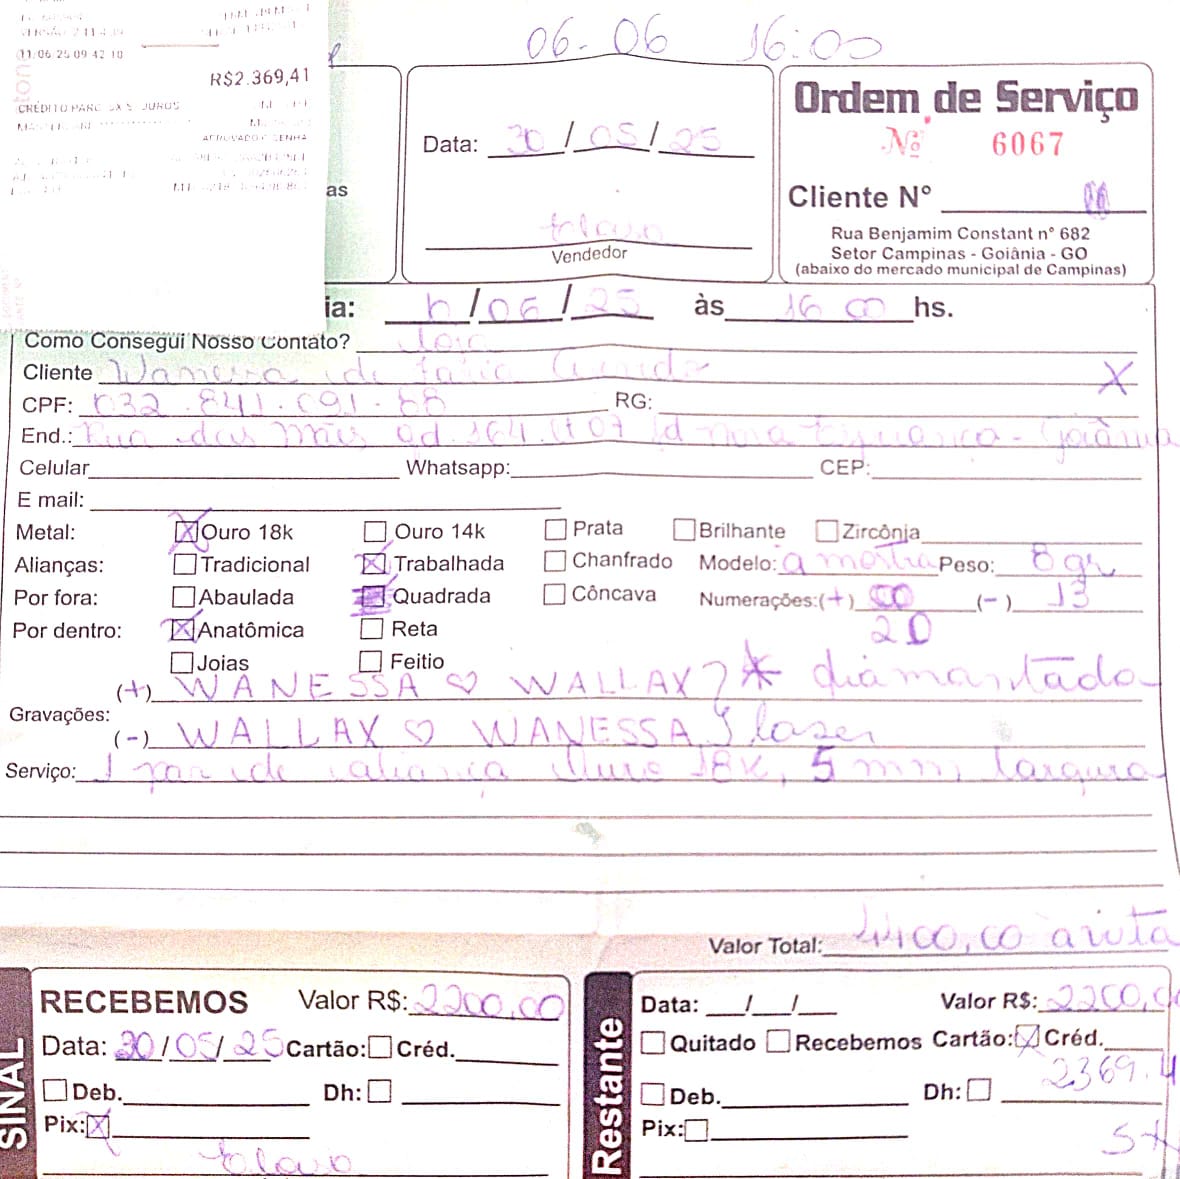 11/06/25 09:42:10
R$2.369,41
CRÉDITO PARC. 5X S/ JUROS
APROVADO C/ SENHA
06-06 16:00
Ordem de Serviço
Nº 6067
Data: 30/05/25
Cliente Nº
Vendedor
Rua Benjamim Constant nº 682
Setor Campinas - Goiânia - GO
(abaixo do mercado municipal de Campinas)
as
ia: /06/25 às 16 00 hs.
Como Consegui Nosso Contato? Loja
Cliente Wanessa de Faria X
CPF: 032.841.691-88 RG:
End.: Rua das Qd. 164 Lt 07 - Goiânia
Celular Whatsapp: CEP:
E mail:
Metal: X Ouro 18k Ouro 14k Prata Brilhante Zircônia
Alianças: Tradicional X Trabalhada Chanfrado Modelo: a mostra Peso: 8 gr
Por fora: Abaulada Quadrada Côncava Numerações: (+) (-) 13
20
Por dentro: X Anatômica Reta
Joias Feitio
(+) WANESSA ♡ WALLAX * diamantada
Gravações:
(-) WALLAX ♡ WANESSA laser
Serviço: 1 par de aliança Ouro 18K, 5 mm largura
Valor Total: 4400,00 a vista
SINAL
RECEBEMOS Valor R$: 2200,00
Data: 30/05/25 Cartão: Créd.
Deb. Dh:
Pix: X
Restante
Data: / / Valor R$: 2200,00
Quitado Recebemos Cartão: X Créd.
2369.4
Deb. Dh:
Pix:
5x